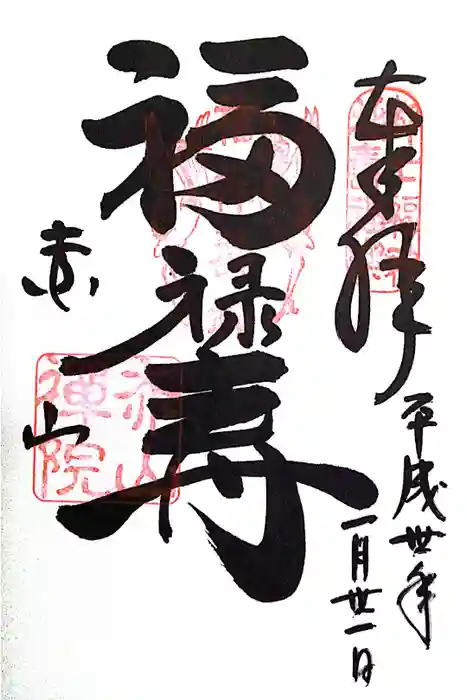 奉拝
平成丗年
一月丗一日
福禄寿
赤山
赤山
禪院